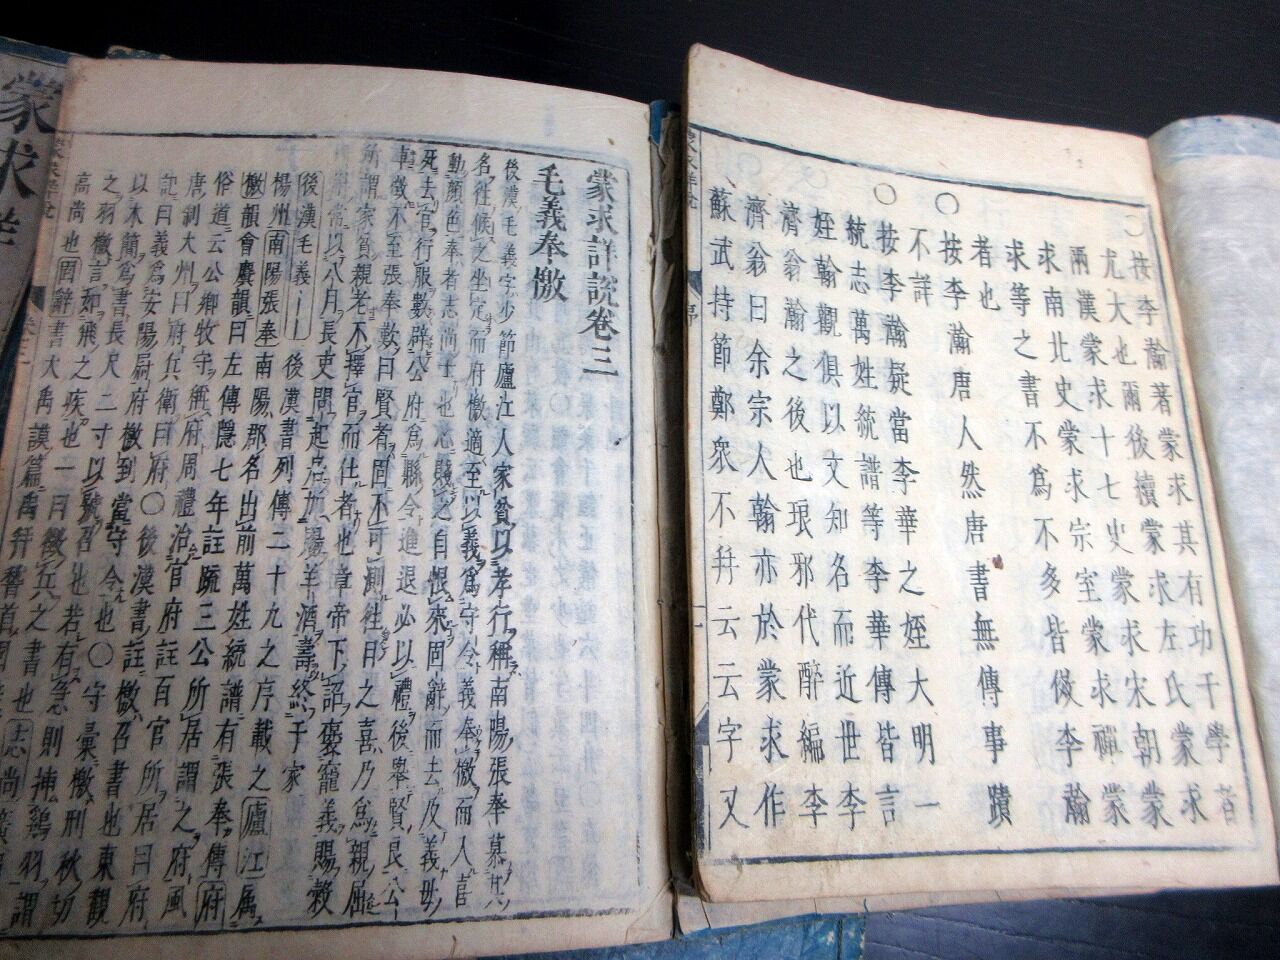 〇按李瀚著蒙求其有功于學者
尤大也爾後續蒙求左氏蒙求
兩漢蒙求十七史蒙求宋朝蒙
求南北史蒙求宗室蒙求禪蒙
求等之書不為不多皆從李瀚
者也
〇按李瀚唐人然唐書無傳事蹟
不詳
〇按李瀚疑當李華之姪大明一
統志萬姓統譜等李華傳皆言
姪翰觀俱以文知名而近世李
濟翁瀚之後也琅邪代醉編李
濟翁曰余宗人瀚亦於蒙求作
蘇武持節鄭衆不拜云云字又
蒙求詳說
序
蒙求詳說卷三
毛義奉檄
後漢毛義字少節廬江人家貧以孝行稱南陽張奉慕其
名往候之坐定而府檄適至以義為守令義奉檄而入喜
動顏色奉者志尚士也心賤之自恨來固辭而去及義母
死去官行服數辟公府為縣令進退必以禮後舉賢良公
車徵不至張奉歎曰賢者固不可測往日之喜乃為親屈
所謂家貧親老不擇官而仕者也章帝下詔褒寵義賜穀
常以八月長吏問起居加賜羊酒壽終于家
後漢毛義 後漢書列傳二十九之序載之廬江属
楊州南陽張奉南陽郡名出前萬姓統譜有張奉傳府
檄韻會廣韻曰左傳隱七年註疏三公所居謂之府風
俗通云公卿牧守府周禮治官府註百官所居曰府
唐制大州曰府兵衛曰府〇後漢書註檄召書也東觀
記曰義為安陽尉府檄到當守令也〇守彙檄刑狄切
以木簡為書長尺二寸以號召也若有急則揷鷄羽謂
之羽檄言如飛之疾也一曰徵兵之書也志尚
高尚也固辭書大禹謨篇禹拜稽首固
蒙求詳